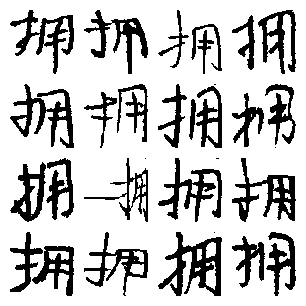 拥拥拥拥
拥拥拥拥
拥拥拥拥
拥拥拥拥